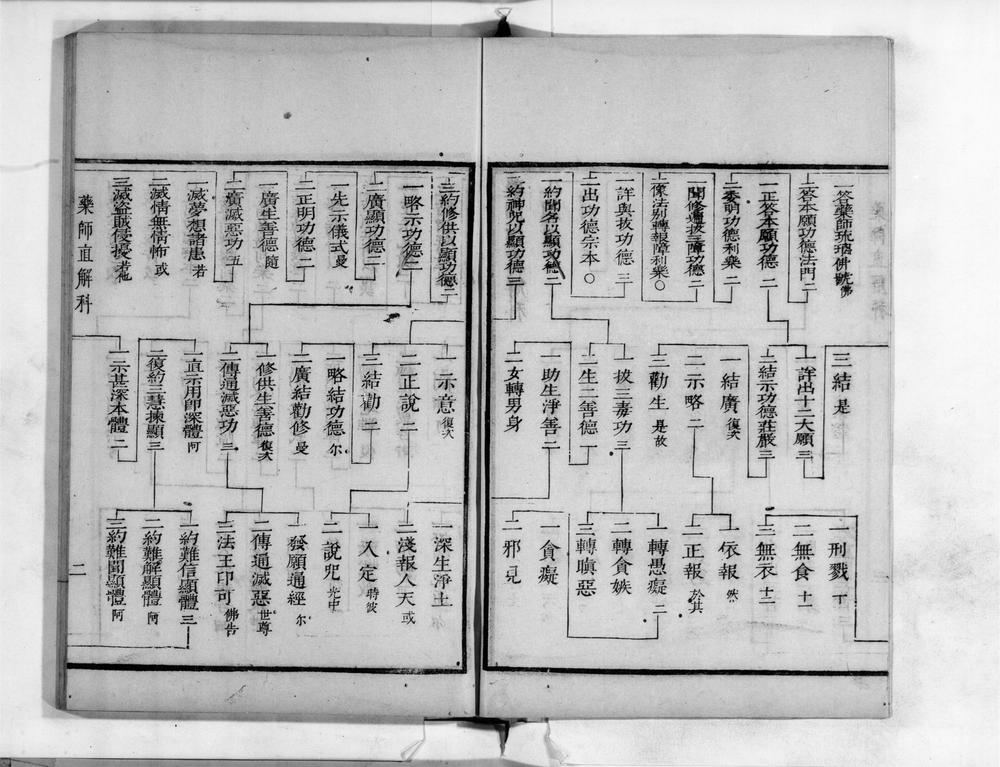 一答藥師琉璃佛號 佛
上答本願功德法門 二
一正答本願功德 二
二委明功德利樂 二
一聞修通拔三障功德 二
上像法別轉報障利樂 〇
一詳與拔功德 三
上出功德宗本 〇
一約聞名以顯功德 二
二約神呪以顯功德 三
三結是
一詳出十二大願 三
二結示功德莊嚴 三
一結廣 復次
二示略 二
三勸生 是故
一拔三毒功 三
二生二善德
一助生淨善 二
二女轉男身
一刑戮
二無食 十一
三無衣 十二
一依報 然
二正報 於其
一轉愚癡 二
二轉貪嫉
三轉瞋惡
一貪癡
二邪見
三約修供以顯功德 二
一略示功德 二
二廣顯功德 二
一先示儀式 曼
二正明功德 二
一廣生善德 隨
二廣滅惡功 五
一滅夢想諸患 若
二滅情無情怖 或
三滅盜賊侵擾 若他
藥師直解科
一示意 復次
二正說 二
三結勸 二
一略結功德 尔
二廣結勸修 曼
一修供生善德 復次
二傳通滅惡功 三
一直示用即深體 阿
二復約三慧揀顯 三
二示甚深本體 二
一深生淨土
二淺報人天 或
一入定 時彼
二說呪 光中
一發願通經 尔
二傳通滅惡 世尊
三法王印可 佛告
一約難信顯體 三
二約難解顯體 阿
三約難聞顯體 阿
二